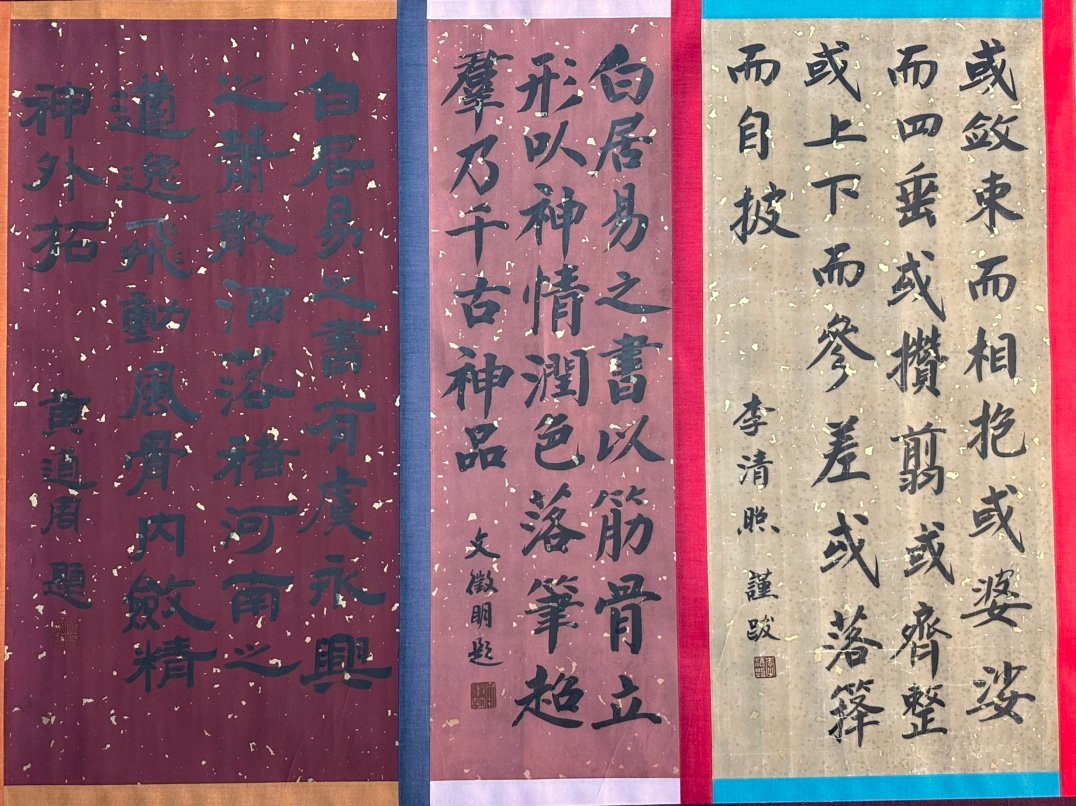 或斂束而相抱或婆娑
而四垂或攢翦或齊整
或上下而參差或落籜
而自披
李清照 謹跋
白居易之書以筋骨立
形以神情潤色落筆超
羣乃千古神品
文徵明題
白居易之書有虞永興
之蕭散洒落褚河南之
遒逸飛動風骨内斂精
神外拓
黃道周題